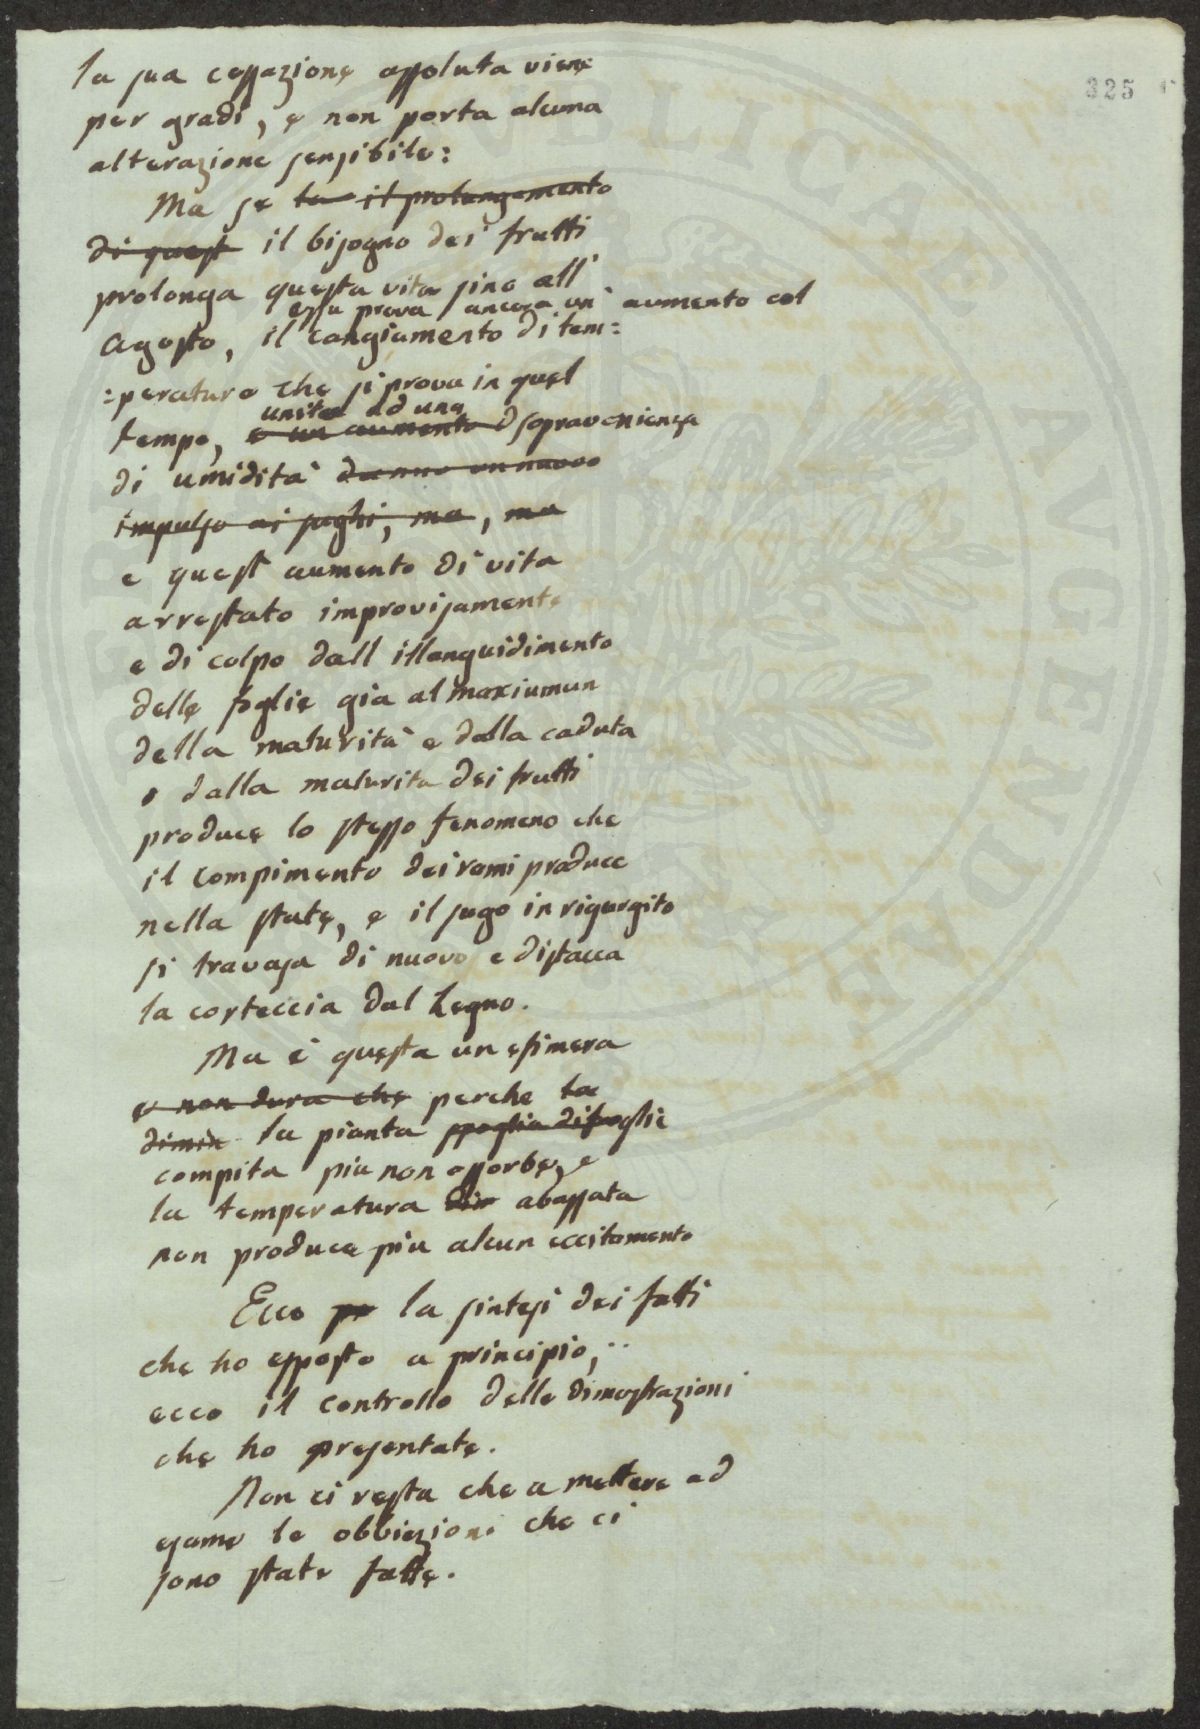 325
la sua cessazione assoluta viene
per gradi, e non porta alcuna
alterazione sensibile:
Ma se la il prolungamento
di quest il bisogno dei frutti
prolonga questa vita sino all'
essa prova ancora un' aumento col
Agosto, il cangiamento di tem:
:peratura che si prova in quel
unita ad una
tempo, e un aumento sopraveniensa
di umidità danno un nuovo
impulso ai sughi, ma, ma
e quest aumento di vita
arrestato improvisamente
e di colpo dall illanguidimento
delle foglie gia al maxiumun
della maturità e dalla caduta
o dalla maturita dei frutti
produce lo stesso fenomeno che
il compimento dei rami produce
nella state, e il sugo in rigurgito
si travasa di nuovo e distacca
la corteccia dal Legno.
Ma è questa un efimera
e non dura che perche la
dimin la pianta spoglia di foglie
compita piu non assorbe, e
la temperatura abassata
non produce piu alcun eccitamento
Ecco pe la sintesi dei fatti
che ho esposto a principio,
ecco il controllo delle dimostrazioni
che ho presentate.
Non ci resta che a mettere ad
esame le obbiezioni che ci
sono state fatte.